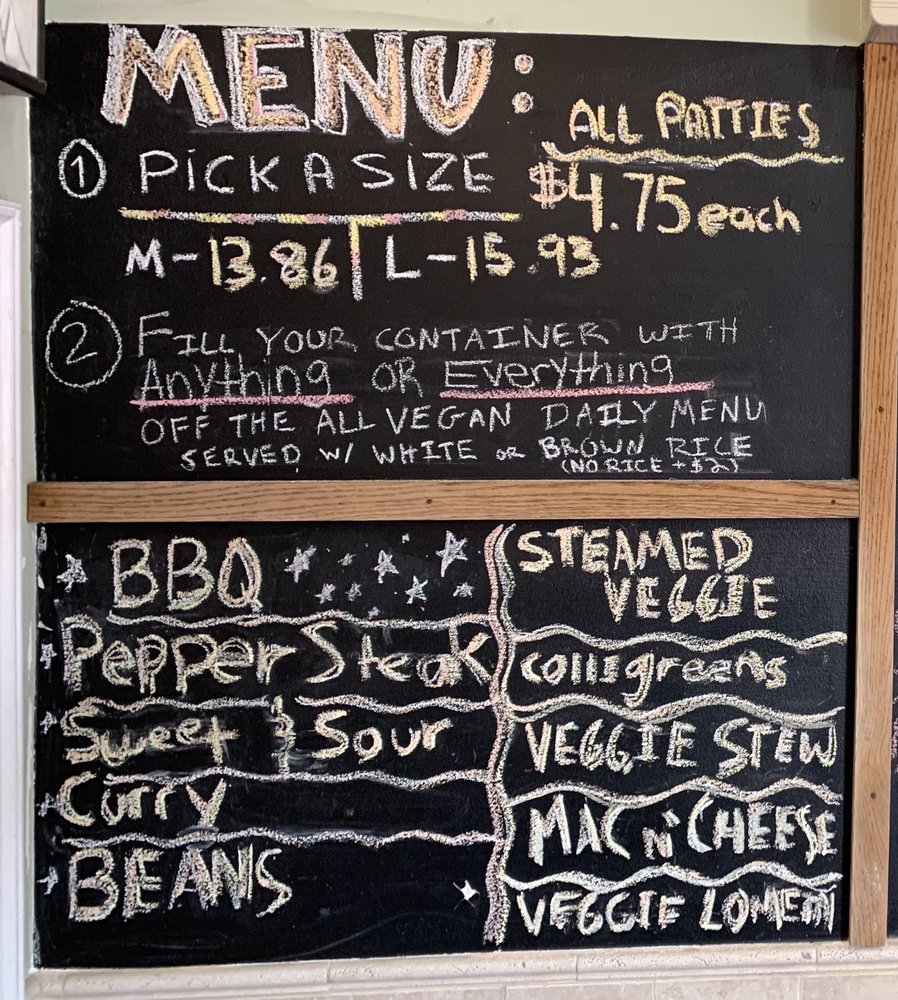 MENU:
ALL PATTIES
$4.75 each
① PICK A SIZE
M-13.86 L-15.93
② FILL YOUR CONTAINER WITH
Anything OR Everything
OFF THE ALL VEGAN DAILY MENU
SERVED W/ WHITE OR BROWN RICE
(NO RICE +$2)
BBQ
Pepper Steak
Sweet & Sour
Curry
BEANS
STEAMED
VEGGIE
collsgreens
VEGGIE STEW
MAC N' CHEESE
VEGGIE LOMEIN